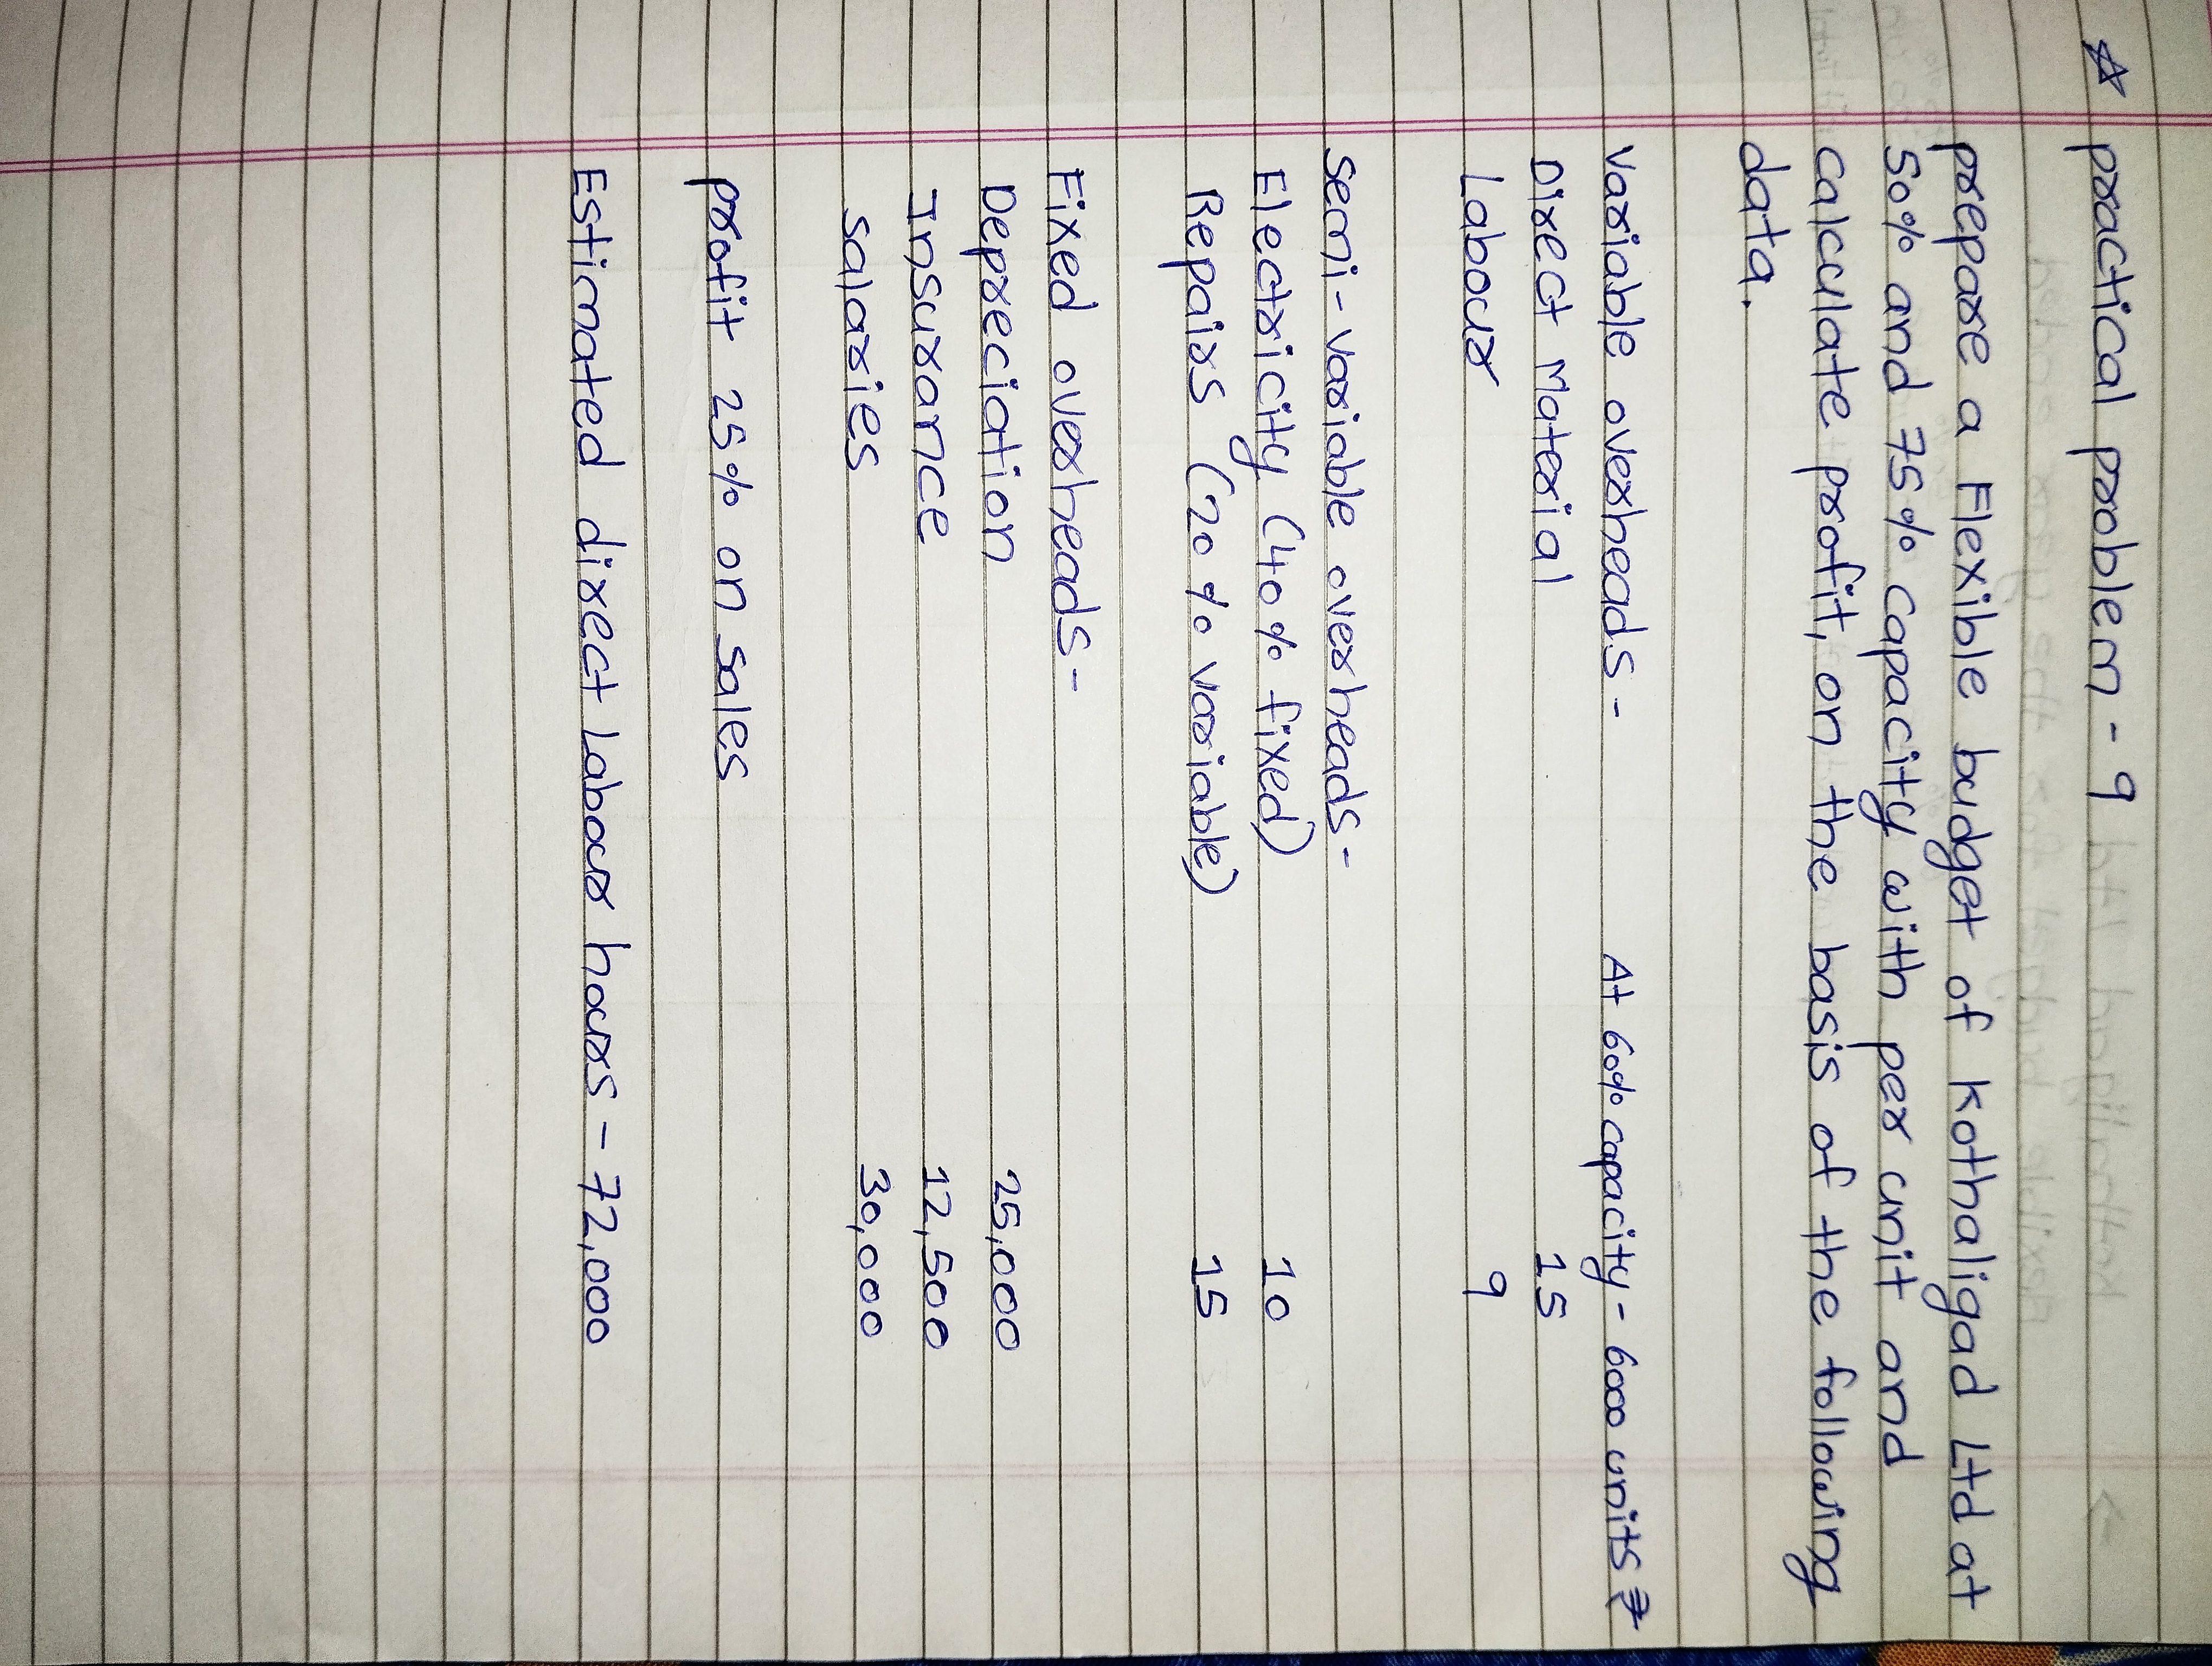 ☆ practical problem - 9
prepare a Flexible budget of Kothaligad Ltd at
50% and 75% capacity with per unit and
calculate profit, on the basis of the following
data.
variable overheads - At 60% capacity - 6000 units ₹
Direct Material 15
Labour 9
semi-variable overheads -
Electricity (40% fixed) 10
Repairs (20% variable) 15
Fixed overheads -
Depreciation 25,000
Insurance 12,500
salaries 30,000
profit 25% on sales
Estimated direct labour hours - 72,000